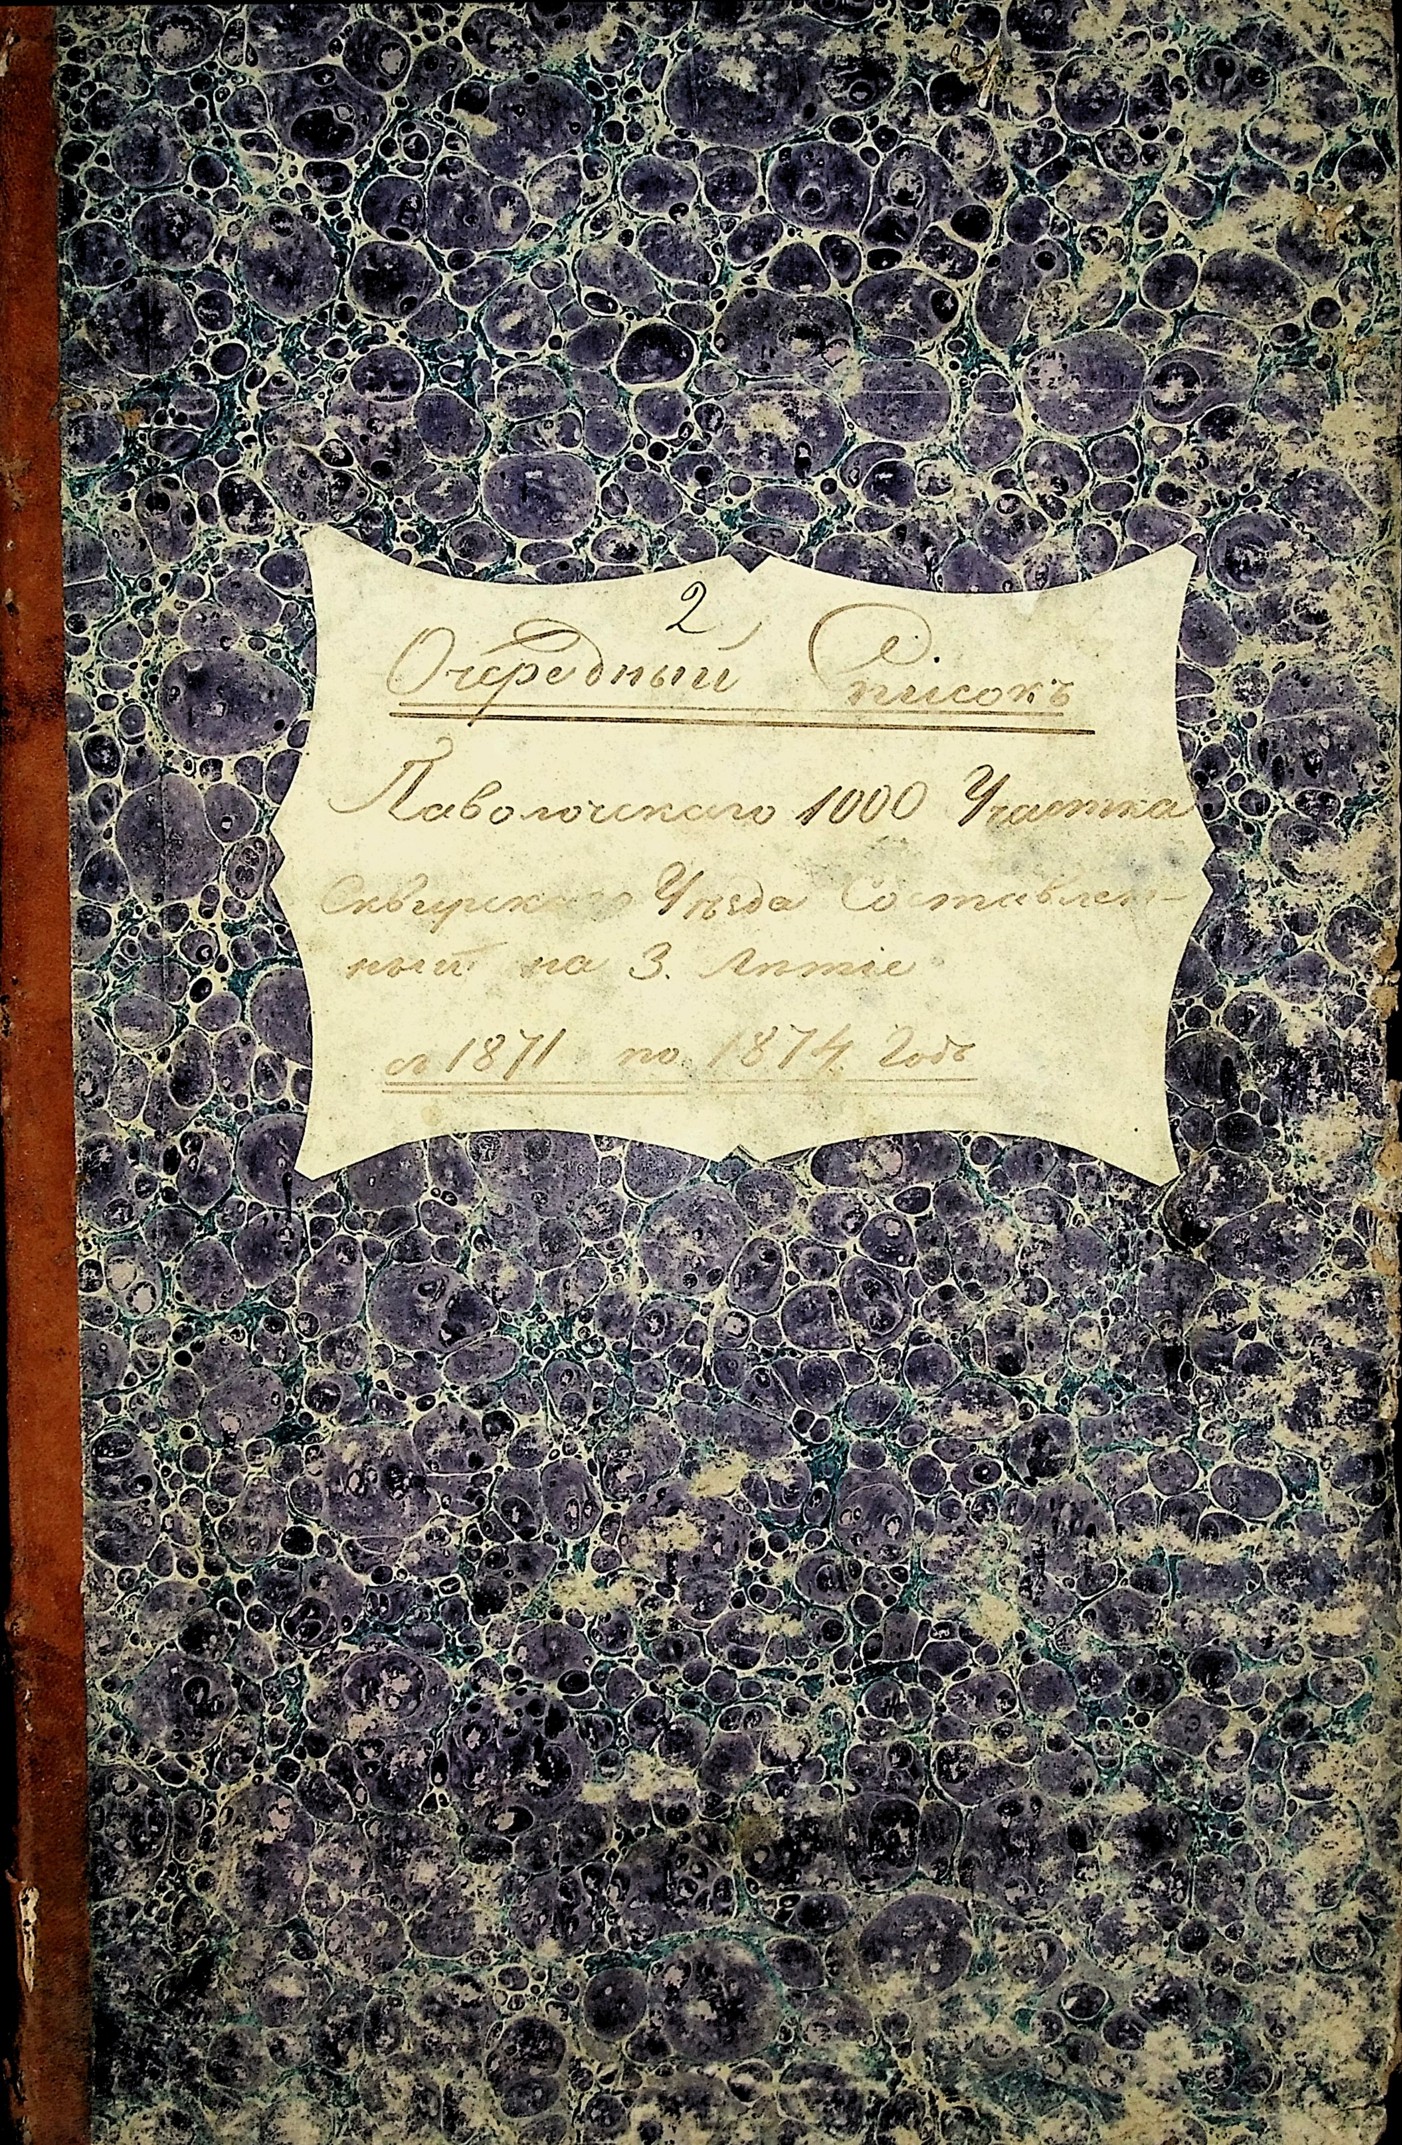 2
Очередный Списокъ
Паволочскаго 1000 Участка
Сквирскаго Уѣзда Составлен-
ный на 3. лѣтіе
съ 1871 по 1874 Годъ